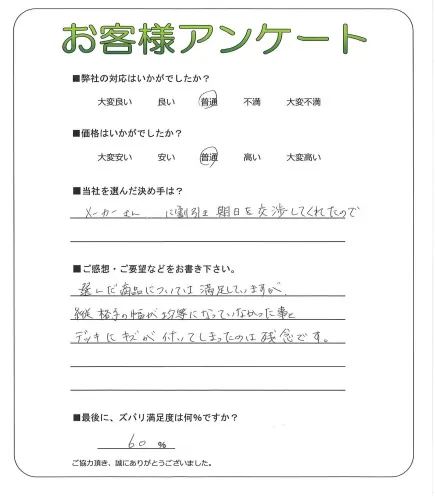 お客様アンケート
■弊社の対応はいかがでしたか?
大変良い 良い 普通 不満 大変不満
■価格はいかがでしたか?
大変安い 安い 普通 高い 大変高い
■当社を選んだ決め手は?
メーカーさん に割引き 期日を交渉してくれたので
■ご感想・ご要望などをお書き下さい。
選んだ商品については満足していますが、
縦格子の幅が均等になっていなかった事と
デッキにキズが付いてしまったのは残念です。
■最後に、ズバリ満足度は何%ですか?
60 %
ご協力頂き、誠にありがとうございました。